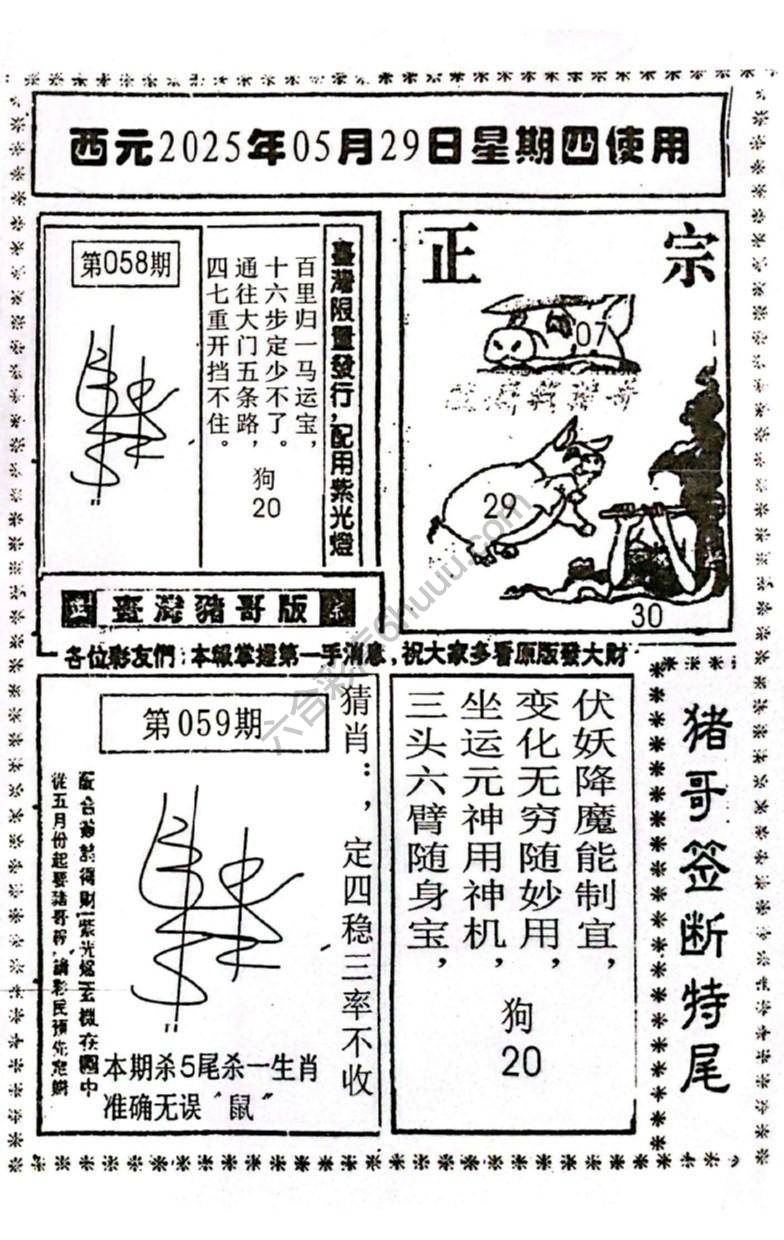 西元2025年05月29日星期四使用
臺灣限量發行，配用紫光燈
百里归一马运宝，
十六步定少不了。
通往大门五条路，
四七重开挡不住。
狗
20
第058期
正宗
07
29
30
臺灣豬哥版
各位彩友們：本報掌握第一手消息，祝大家多看原版發大財
猜肖：，定四稳三率不收
第059期
本期杀5尾杀一生肖
准确无误“鼠”
伏妖降魔能制宜，
变化无穷随妙用，
坐运元神用神机，
三头六臂随身宝，
狗
20
猪哥签断特尾
六合彩库6huuu.com